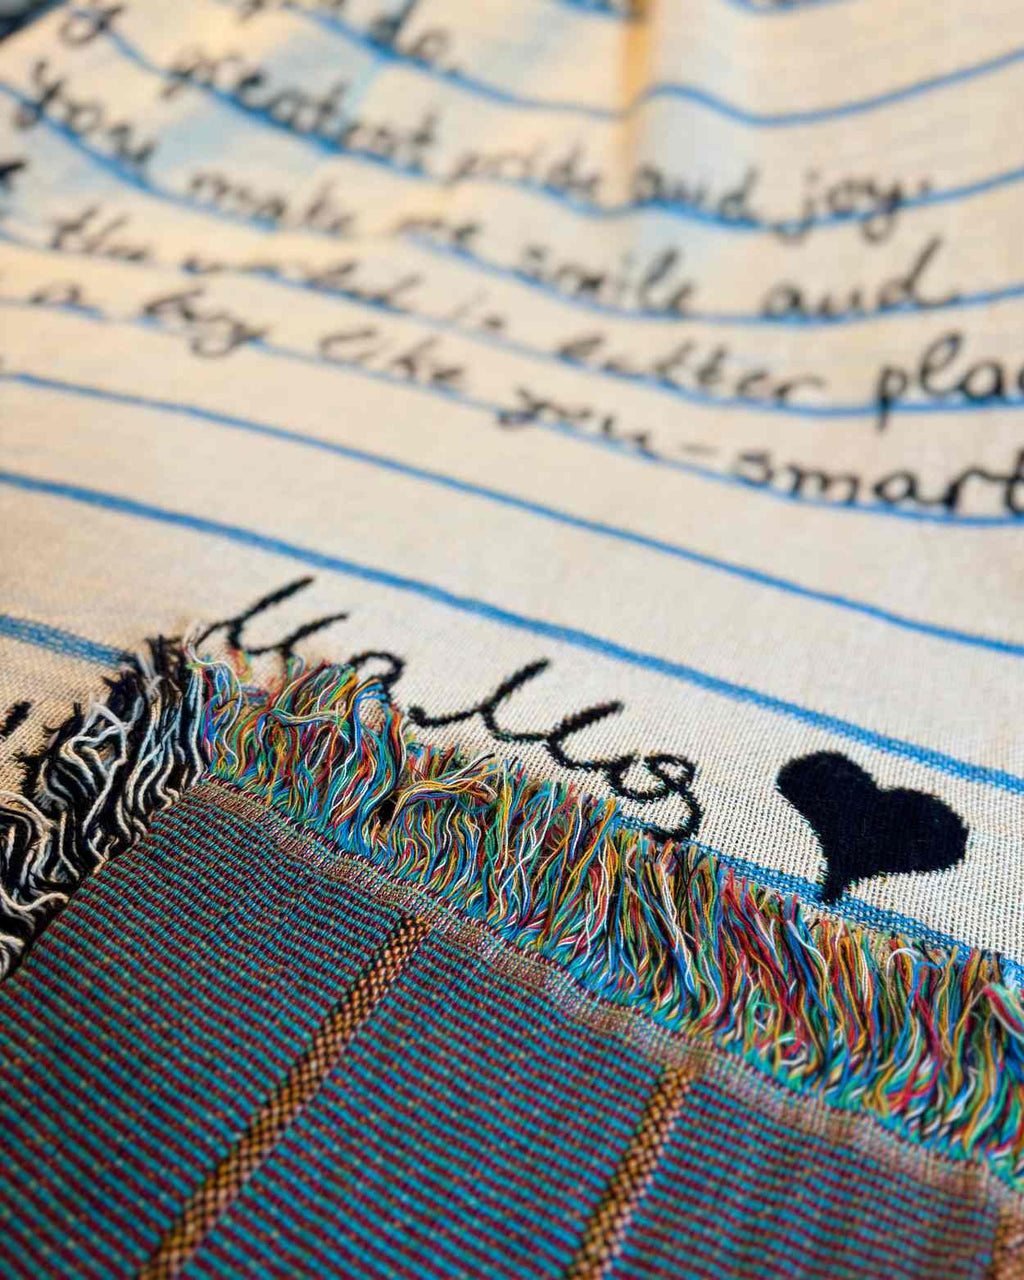 greatest pride and joy.
you make me smile and
the world is better plac
a boy like you-smart